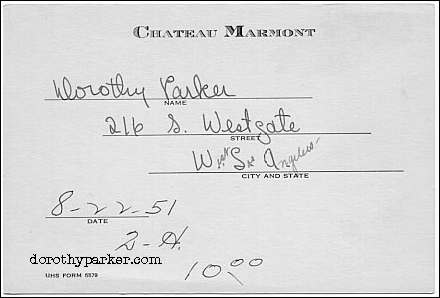 CHATEAU MARMONT
Dorothy Parker
NAME
216 S. Westgate
STREET
West Los Angeles
CITY AND STATE
8-22-51
DATE
2-A.
dorothyparker.com
10.00
UHS FORM 5579